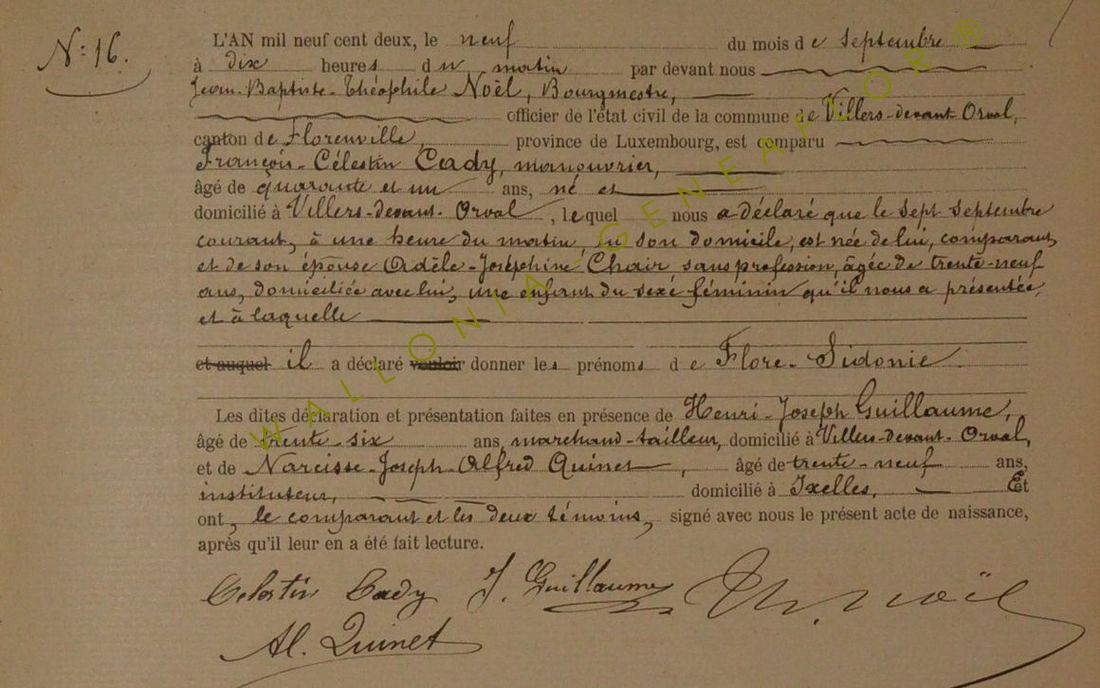 N: 16.
L'AN mil neuf cent deux, le neuf du mois de septembre
à dix heures du matin par devant nous
Jean-Baptiste-Théophile Noël, Bourgmestre,
officier de l'état civil de la commune de Villers-devant-Orval,
canton de Florenville, province de Luxembourg, est comparu
François-Célestin Cady, manouvrier,
âgé de quarante et un ans, né et
domicilié à Villers-devant-Orval, lequel nous a déclaré que le sept septembre
courant, à une heure du matin, en son domicile, est née de lui, comparant,
et de son épouse Adèle-Joséphine Chair sans profession, âgée de trente-neuf
ans, domiciliée avec lui, une enfant du sexe féminin qu'il nous a présentée,
et à laquelle
et auquel il a déclaré vouloir donner les prénoms de Flore-Sidonie.
Les dites déclaration et présentation faites en présence de Henri-Joseph Guillaume,
âgé de trente-six ans, marchand-tailleur, domicilié à Villers-devant-Orval,
et de Narcisse-Joseph-Alfred Quinet, âgé de trente-neuf ans,
instituteur, domicilié à Ixelles, Et
ont, le comparant et les deux témoins, signé avec nous le présent acte de naissance,
après qu'il leur en a été fait lecture.
Celestin Cady J. Guillaume Th. Noël
Al. Quinet
WALLONIA-GENEAFLOR®